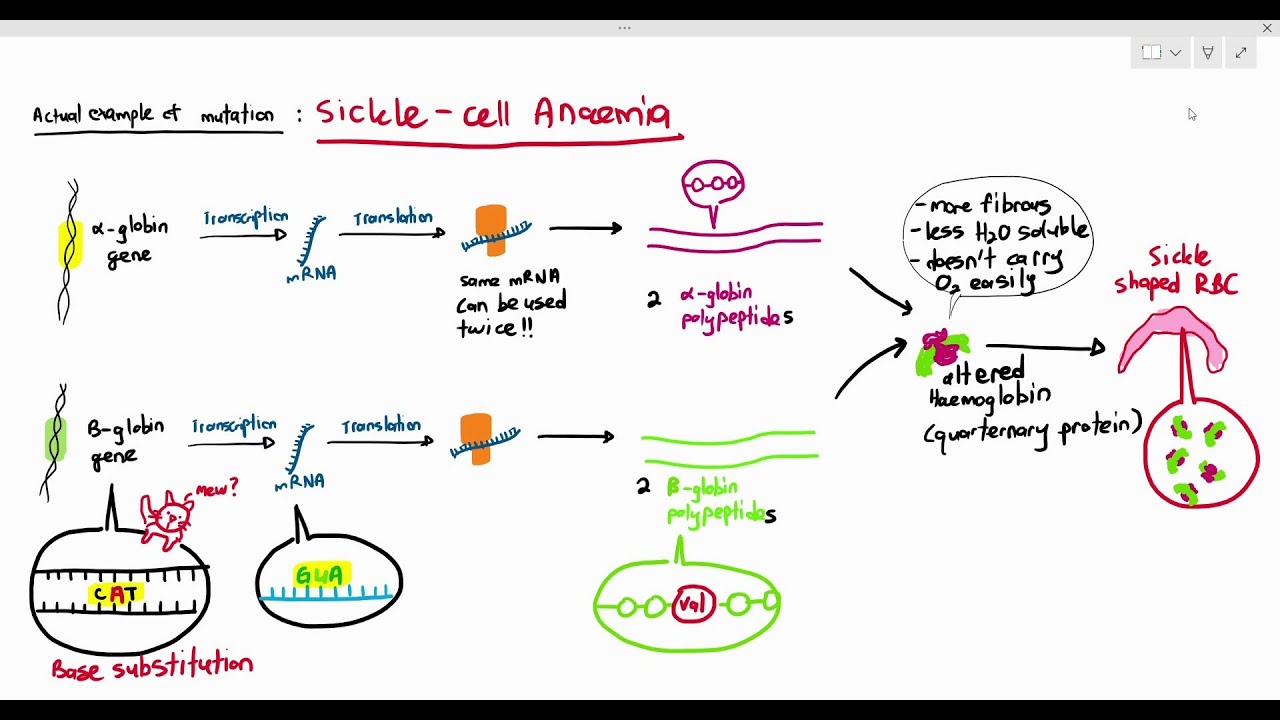 Actual example of mutation : Sickle-cell Anaemia
α-globin
gene
Transcription
mRNA
Translation
same mRNA
can be used
twice!!
2 α-globin
polypeptides
- more fibrous
- less H2O soluble
- doesn't carry
O2 easily
altered
Haemoglobin
(quarternary protein)
Sickle
shaped RBC
β-globin
gene
Transcription
mRNA
Translation
2 β-globin
polypeptides
mew?
CAT
GUA
val
Base substitution